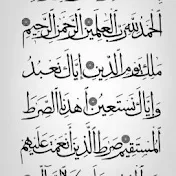 الحمد لله رب العلمين الرحمن الرحيم
ملك يوم الدين إياك نعبد
وإياك نستعين اهدنا الصرط
المستقيم صرط الذين أنعمت عليهم